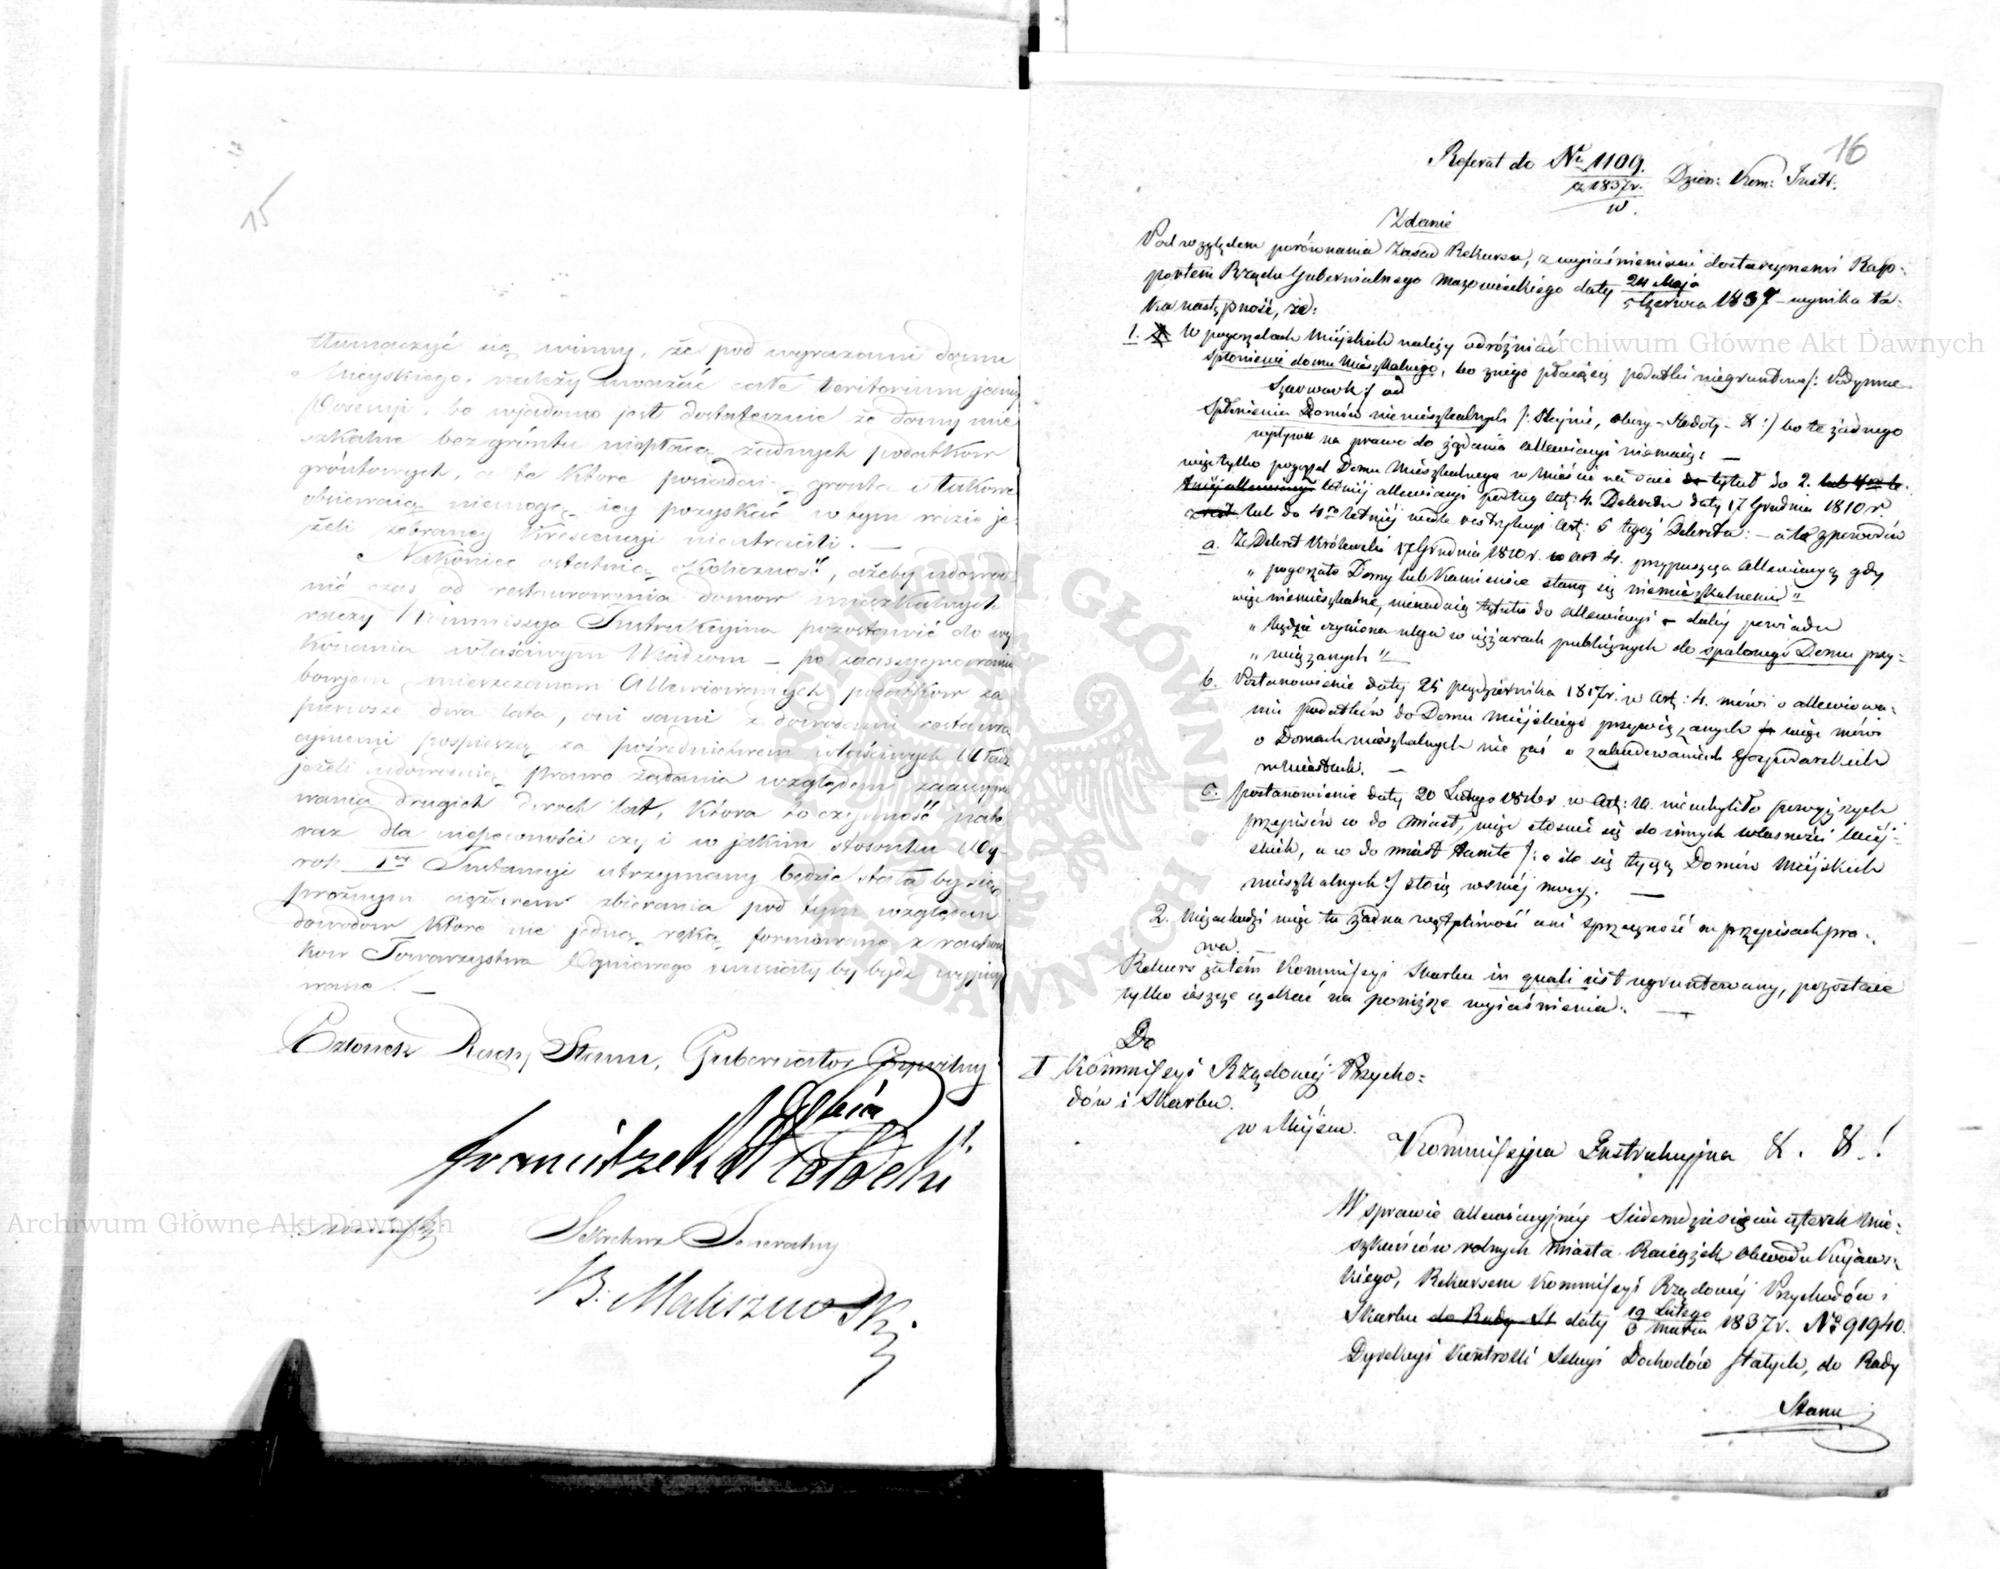 15
tłumaczyć się winny, że pod wyrazami domu
Mieyskiego, należy uważać całe teritorium janey
Possessyi, bo wiadomo jest dostatecznie że domy mie
szkalne bez gróntu niepłacą żadnych podatków
gróntowych, a te które posiadaią gronta i takowe
obsiewaią niemogą iey pozyskać w tym razie je-
żeli zebraney Krescencyi nieutracili. —
Nakoniec ostatnią okoliczność, ażeby udowod-
nić czas od restaurowania domów mieszkalnych
raczy Kommissya Instrukcyina pozostawić do wy
konania właściwym Władzom — po zaassygnowaniu
bowjem mieszczanom Allewiowanych podatków za
pierwsze dwa lata, oni sami z dowodami restaura
cyinemi pospieszą za pośrednictwem właściwych Władz
jeżeli udowodnią prawo żądania względem zaassygno
wania drugich dwóch lat, która to czynność nate
raz dla niepewności czy i w jakim stosunku Wy-
rok Iéy Instancyi utrzymany będzie stała by się
próżnym ciężarem zbierania pod tym względem
dowodów które nie jedną ręką formowane z rachun
ków Towarzystwa Ogniowego musiały by bydź wypisy
wane. —
Członek Rady Stanu, Gubernator Cywilny
Franciszek Potocki
Sekretarz Jeneralny
B. Maliszewski
16
Referat do Nr. 1109. Dzien: Kom: Instr.
z 1837r.
W.
Zdanie
Pod względem porównania Zasad Rekursu, z wyiaśnieniami dostarczonemi Rap-
portem Rządu Gubernialnego Mazowieckiego daty 24 Maja
5 Czerwca 1837 - wynika ta-
ka następność, że:
1. W pogorzelach Miejskich należy odróżniać
spłonienie domu Mieszkalnego, bo z niego płacą się podatki niegruntowe /: Podymne
Szarwark :/ od
Spłonienia Domów niemieszkalnych /: Stajnie, obory - Stodoły - & :/ bo te żadnego
wpływu na prawo do żądania allewiacyi niemaią: —
więc tylko pogorzel Domu Mieszkalnego w Mieście nadaie tytuł do 2.
letniéj allewiacyi podług art: 4. Dekretu daty 17 Grudnia 1810 r.
lub do 4ro letniéj wedle restrykcyi Art: 5 tegoż Dekretu: — a to z powodów
a. Że Dekret Królewski 17 Grudnia 1810 r. w art 4. przypuszcza allewiacyą gdy
„ pogorzałe Domy lub Kamienice staną się niemieszkalnemi"
więc niemieszkalne, nienadaią tytułu do allewiacyi - daléj powiada
„ będzie czyniona ulga w ciężarach publicznych do spalonego Domu przy-
„ wiązanych"
b. Postanowienie daty 25 października 1817r. w Art: 4. mówi o allewiowa-
niu podatków do Domu Miejskiego przywiązanych więc mówi
o Domach mieszkalnych nie zaś o zabudowaniach gospodarskich
w Miastach. —
c. postanowienie daty 20 Lutego 1816 r. w Art: 10. nieuchyliło powyższych
przepisów co do Miast, więc stosuie się do innych własności Miéj-
skich, a co do miast tamte /: o ile się tyczą Domów Miéjskich
mieszkalnych :/ stoią w swéj mocy. —
2. Niezachodzi więc tu żadna wątpliwość ani sprzeczność w przepisach pra-
wa.
Rekurs zatém Kommissyi Skarbu in quali iest ugruntowany, pozostaie
tylko ieszcze czekać na poniższe wyiaśnienia. —
Do
I Kommissyi Rządowéj Przycho-
dów i Skarbu.
w Miéjscu.
Kommissyia Instrukcyjna & . & . !
W sprawie allewiacyjnéj Siedemdziesięciu czterech Mie-
szkańców rolnych Miasta Raciążek Obwodu Kujaws-
kiego, Rekursem Kommissyi Rządowéj Przychodów i
Skarbu do Rady St daty 19 Lutego
3 Marca 1837r. No 91940.
Dyrekcyi Kontrolli Sekcyi Dochodów stałych, do Rady
Stanu
Archiwum Główne Akt Dawnych
Archiwum Główne Akt Dawnych
ARCHIWUM GŁÓWNE AKT DAWNYCH